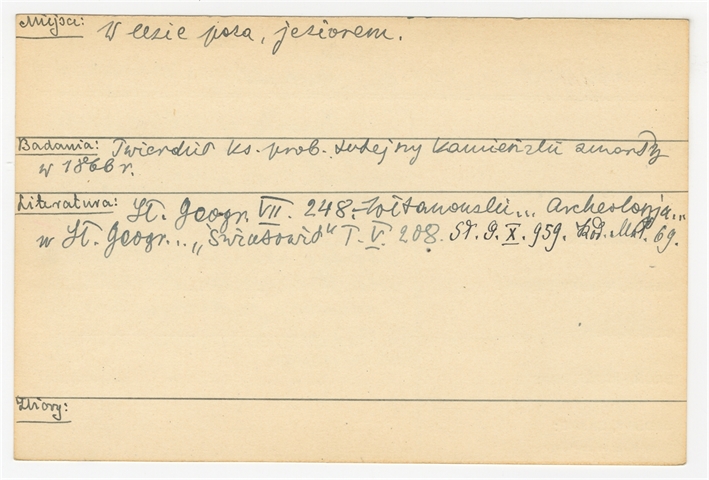 Miejsce: W lesie poza, jeziorem.
Badania: Twierdził ks. prob. tutejszy Kamieński zmarły
w 1866 r.
Literatura: Sł. Geogr. VII. 248. ... Archeologja„
w Sł. Geogr... „Światowid" T. V. 208. Sł. G. X. 959. Kod. Młp. 69.
Zbiory: